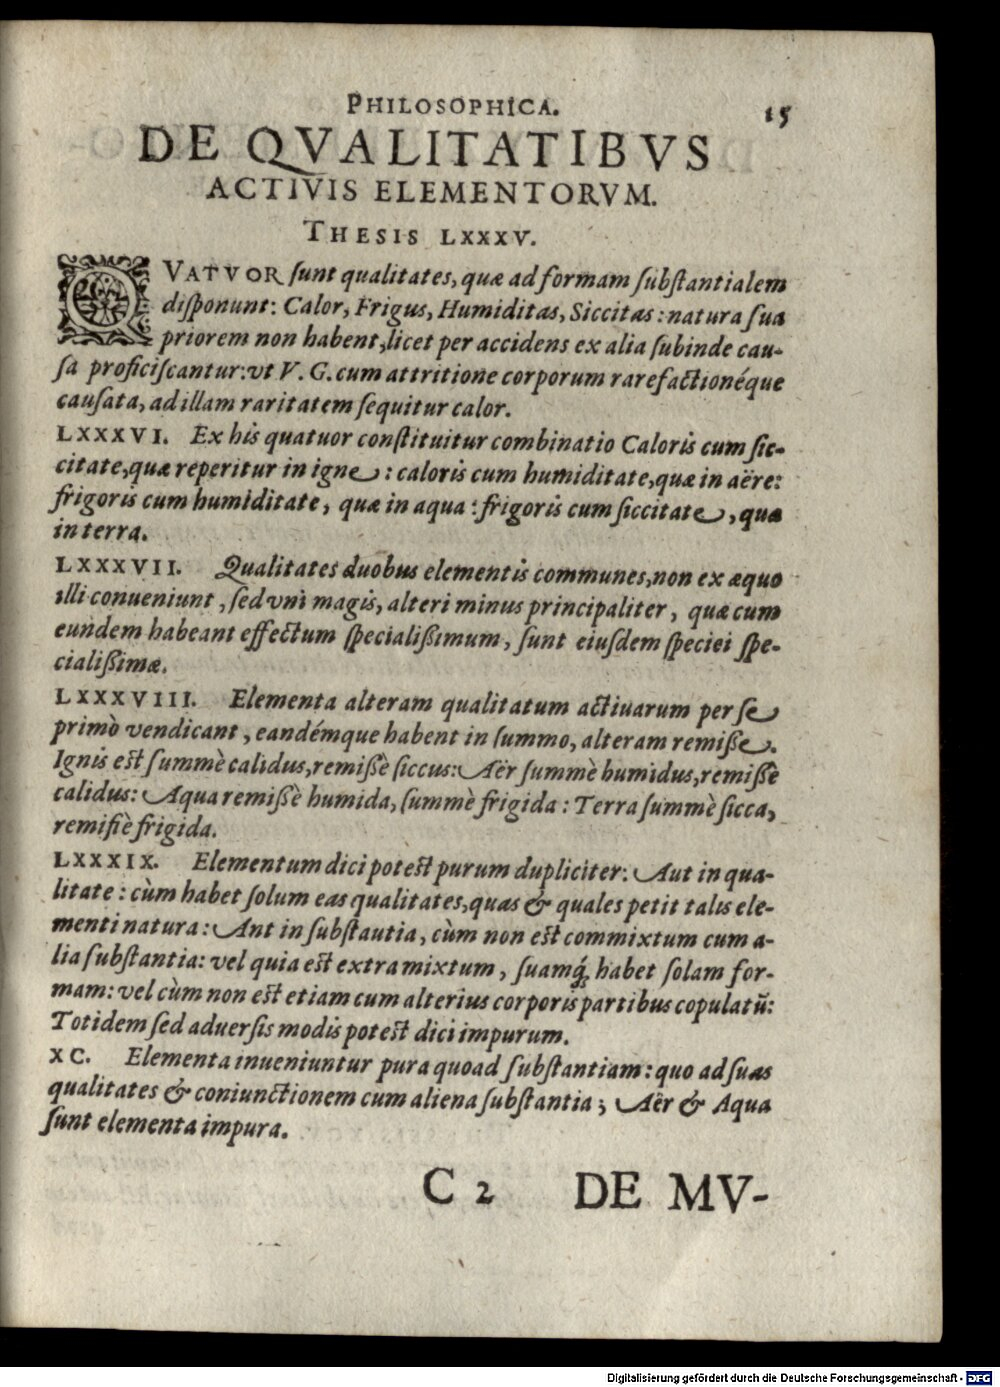 PHILOSOPHICA. 15
DE QVALITATIBVS
ACTIVIS ELEMENTORVM.
THESIS LXXXV.
QVATVOR ſunt qualitates, quæ ad formam ſubſtantialem
diſponunt: Calor, Frigus, Humiditas, Siccitas: natura ſua
priorem non habent, licet per accidens ex alia ſubinde cau-
ſa proficiſcantur: vt V. G. cum attritione corporum rarefactionéque
cauſata, ad illam raritatem ſequitur calor.
LXXXVI. Ex his quatuor conſtituitur combinatio Caloris cum ſic-
citate, quæ reperitur in igne: caloris cum humiditate, quæ in aëre:
frigoris cum humiditate, quæ in aqua: frigoris cum ſiccitate, quæ
in terra.
LXXXVII. Qualitates duobus elementis communes, non ex æquo
illi conueniunt, ſed vni magis, alteri minus principaliter, quæ cum
eundem habeant effectum ſpecialißimum, ſunt eiuſdem ſpeciei ſpe-
cialißimæ.
LXXXVIII. Elementa alteram qualitatum actiuarum per ſe
primò vendicant, eandémque habent in ſummo, alteram remiße.
Ignis eſt ſummè calidus, remißè ſiccus: Aër ſummè humidus, remißè
calidus: Aqua remißè humida, ſummè frigida: Terra ſummè ſicca,
remiſſè frigida.
LXXXIX. Elementum dici poteſt purum dupliciter: Aut in qua-
litate: cùm habet ſolum eas qualitates, quas & quales petit talis ele-
menti natura: Ant in ſubſtautia, cùm non eſt commixtum cum a-
lia ſubſtantia: vel quia eſt extra mixtum, ſuamq́; habet ſolam for-
mam: vel cùm non eſt etiam cum alterius corporis partibus copulatū:
Totidem ſed aduerſis modis poteſt dici impurum.
XC. Elementa inueniuntur pura quoad ſubſtantiam: quo ad ſuas
qualitates & coniunctionem cum aliena ſubſtantia; Aër & Aqua
ſunt elementa impura.
C 2 DE MV-
Digitalisierung gefördert durch die Deutsche Forschungsgemeinschaft - DFG